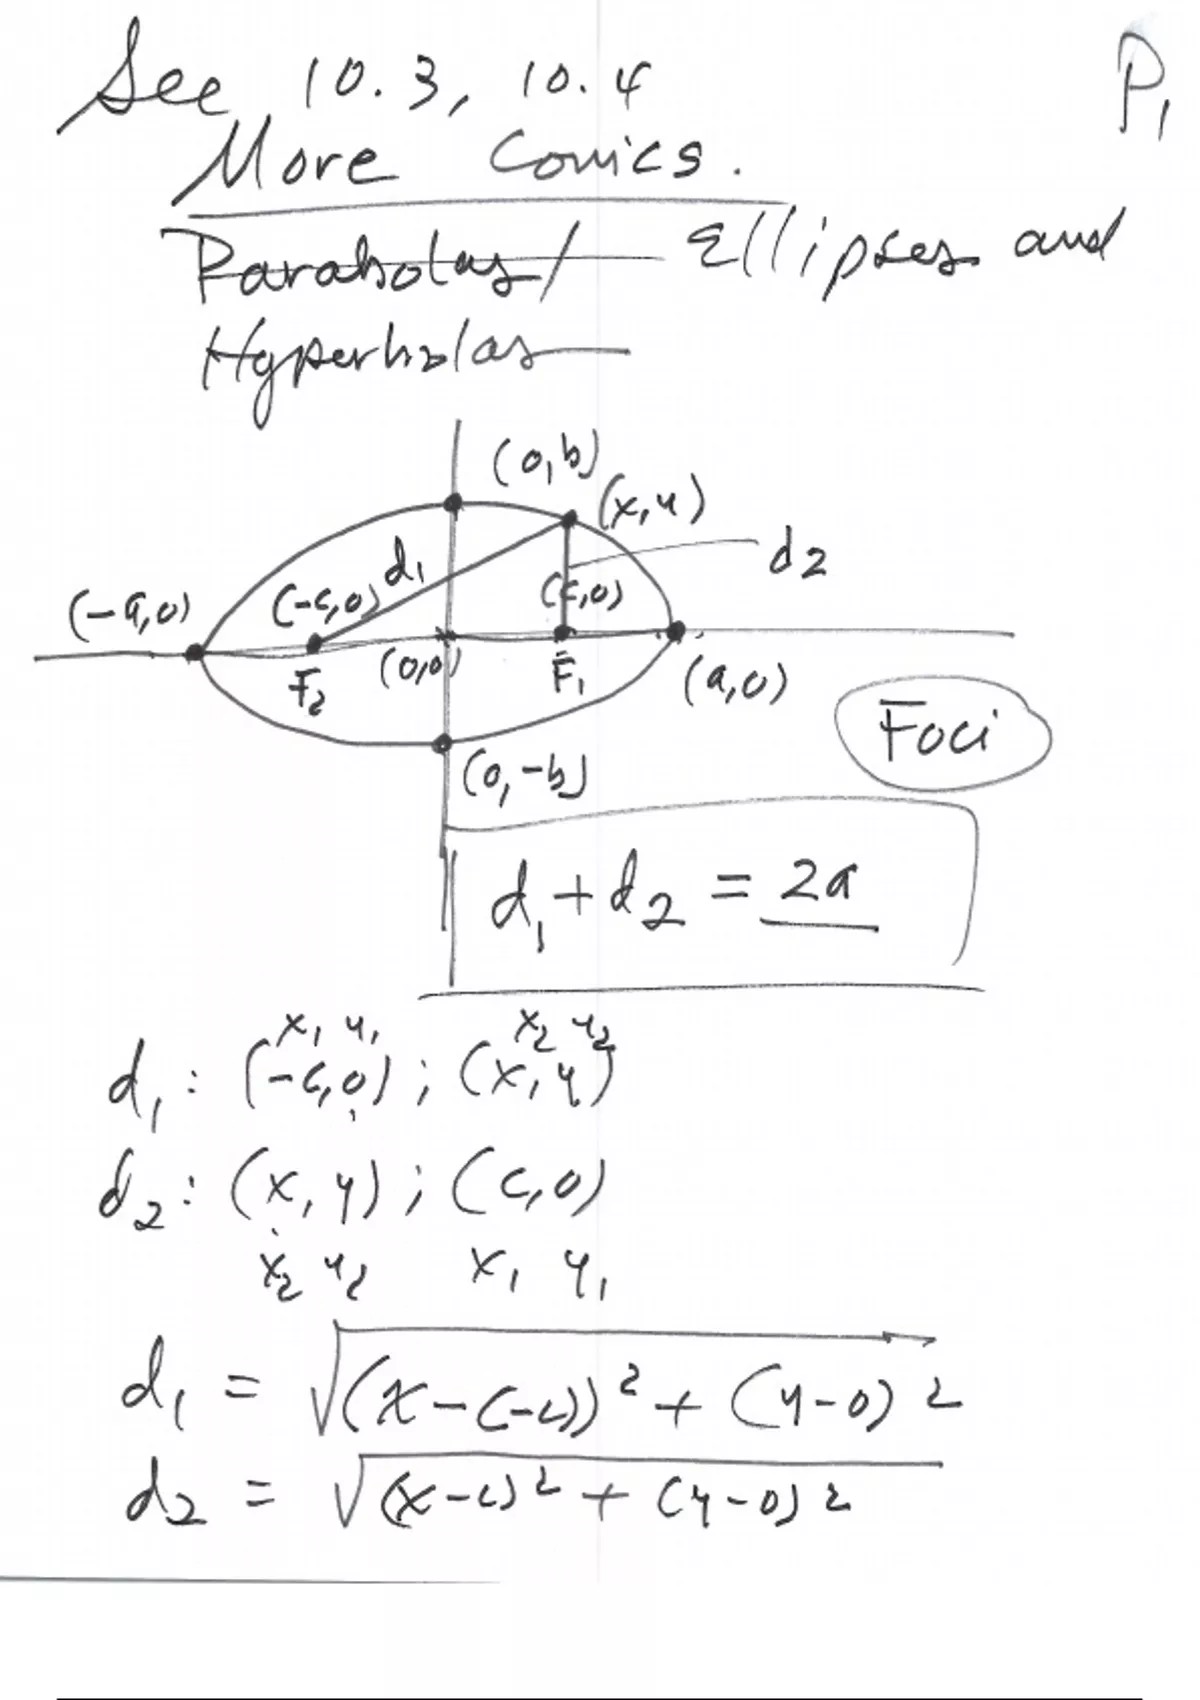 See 10.3, 10.4
P1
More Conics.
Parabolas/ Ellipses and
Hyperbolas
(0,b)
(x,y)
d1
d2
(-a,0)
(-c,0)
(c,0)
F2
(0,0)
F1
(a,0)
Foci
(0,-b)
d1+d2 = 2a
x1 y1 x2 y2
d1: (-c,0); (x,y)
d2: (x,y); (c,0)
x2 y2 x1 y1
d1 = √(x-(-c))² + (y-0)²
d2 = √(x-c)² + (y-0)²